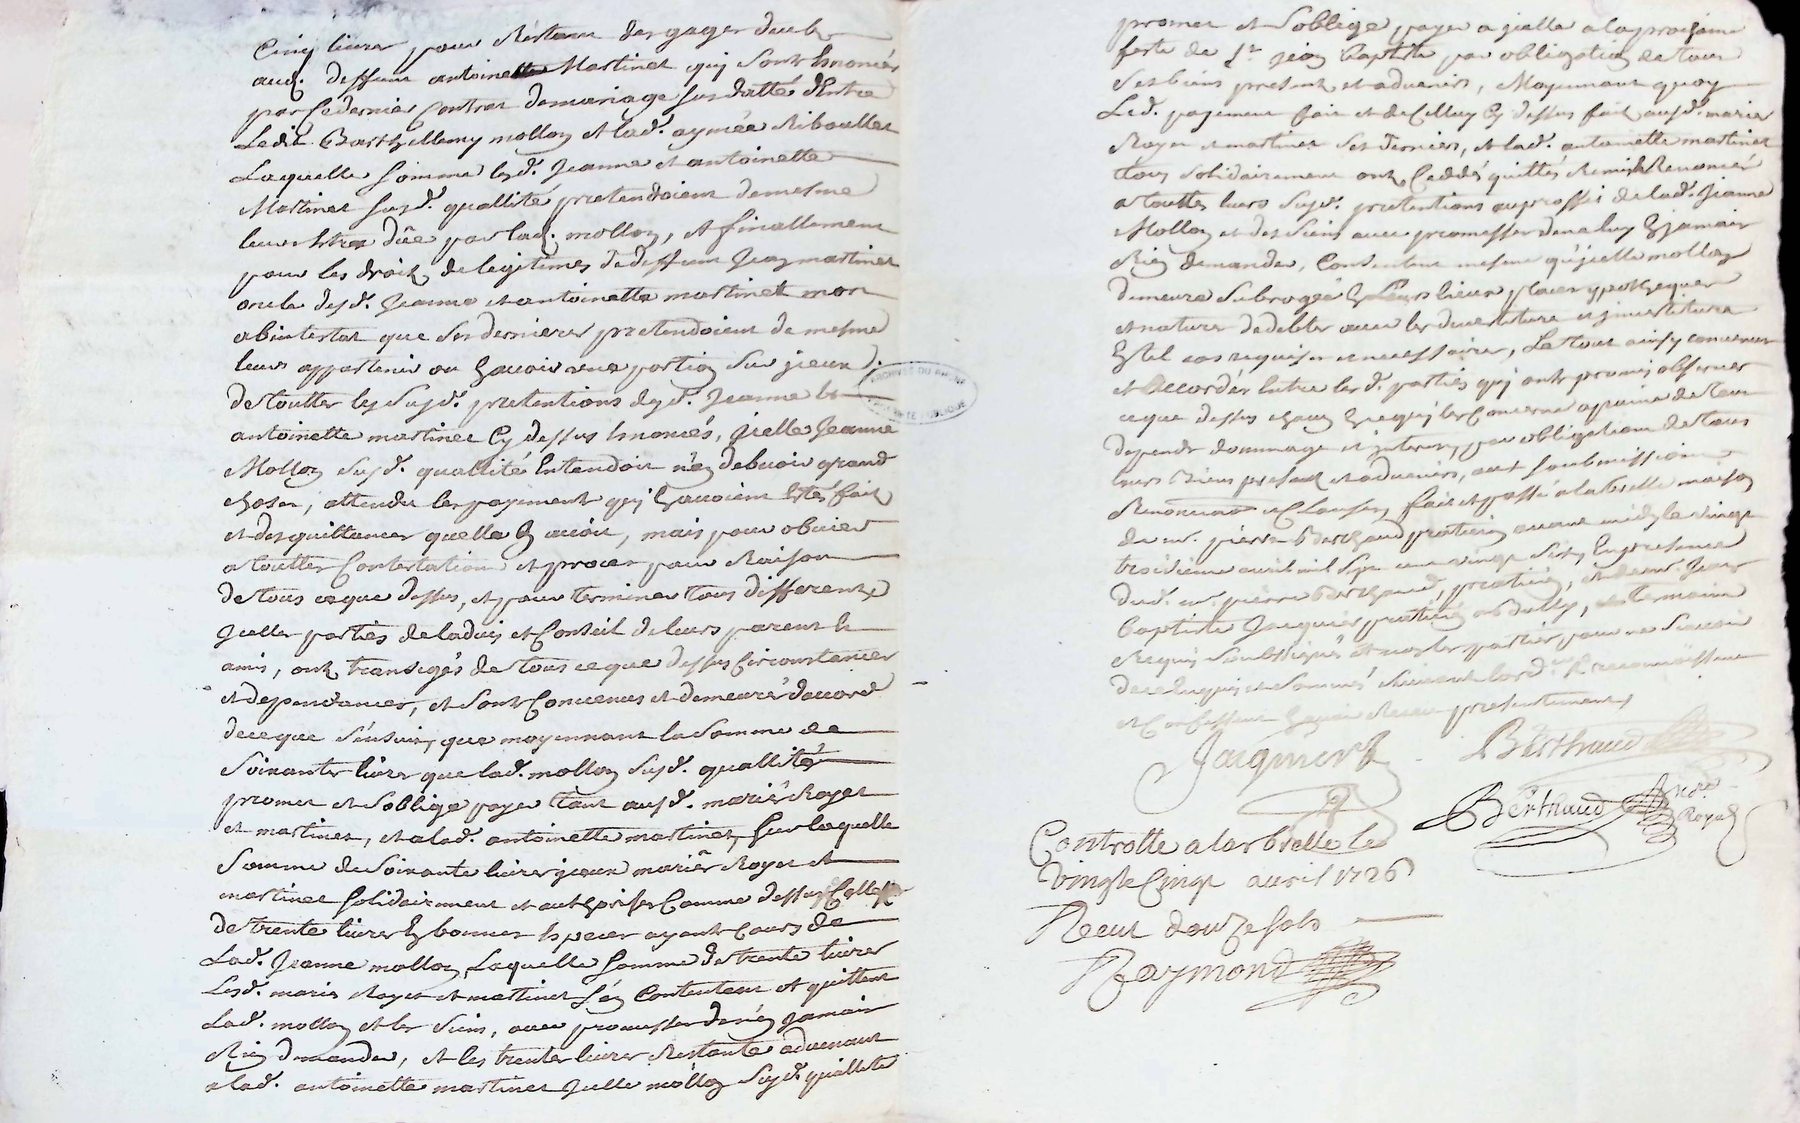 Cinq livres pour Restant des gages deubz
aud. deffunt antoine Martinet qui sont Enoncés
par Ce dernier Contrat de mariage sus datté d'Entre
Ledit Barthellemy mollon Et lad. aymée Riboullet
Laquelle somme lesd. Jeanne et antoinette
Martinet susd. quallité pretendoient de mesme
leur Estre düe par lad. mollon, Et finallement
pour les droitz de legitimes de deffunt Jean martinet
oncle desd. Jeanne et antoinette martinet mort
abintestat que ses dernieres pretendoient de mesme
leur appartenir ou En avoir une portion sur iceux
de touttes les susd. pretentions desd. Jeanne Et
antoinette martinet Cy dessus Enoncés, jcelle Jeanne
Mollon susd. quallité Entendoit n'en debvoir grand
chose, attendu les payement qui En avoient Estés faitz
et des quittances quelle En avoit, mais pour obvier
a touttes Contestations et proces pour Raison
de tous ce que dessus, et pour terminer tous differentz
Jcelles parties de ladvis et Conseil de leurs parent Et
amis, ont transigés de tous ce que dessus Circonstances
et dependances, et sont Convenus et demeurés daccord
de ce que s'ensuit, que moyennant la somme de
Soixantes livres que lad. mollon susd. quallité
promet et s'oblige payer tant ausd. mariés Royet
et martinet, et a lad. antoinette martinet, sur laquelle
somme de soixante livres jceux mariés Royet et
martinet solidairement et authorisés Comme dessus
de trente livres En bonnes Especes ayant Cours de
Lad. Jeanne mollon, Laquelle somme de trente livres
Lesd. mariés Royet et martinet s'en Contentent et quittent
Lad. mollon et les siens, avec promesses de n'en jamais
Rien demander, et les trentes livres Restante advenant
a lad. antoinette martinet Jcelle mollon susd. quallité
promet et s'oblige payer a jcelle a la prochaine
feste de St. Jean baptiste par obligation de tous
ses biens presentz et advenirs, Moyennant quoy
Led. payement fait et de Celluy Cy dessus fait ausd. mariés
Royet et martinet ses derniers, et lad. antoinette martinet
tous solidairement ont Ceddés quittés Remis et Renoncés
a touttes leurs susd. pretentions au proffit de lad. Jeanne
Mollon et des siens avec promesses de ne luy En jamais
Rien demander, Consentent mesme qu'jcelle mollon
demeure subrogée En Leurs lieux places ypotheques
et natures de debtes avec les devestiture et jnvestiture
En tel cas requises et necessaires, Le tout ainsy convenus
et accordés Entre lesd. parties qui ont promis observer
ce que dessus chacun En ce qui les Concerne a paine de tous
despends dommages et jnterests, par obligation de tous
leurs Biens presentz et advenirs, aux soubmissions
Renonciations et Clauses, fait et passé a la bresle maison
de mr. pierre Berthaud praticien avant midy le vingt
troisieme avril mil sept cent vingt six, En presence
dud. mr. pierre Berthaud, praticien, et de mr. Jean
baptiste Jacquier praticien a Bully, tesmoins
Requis soubsignés et non les parties pour ne scavoir
de ce Enquis et sommés suivant lord.ce
et Confessent avoir Receu presentement
Jacquier Berthaud
Berthaud Nore Royal
Controlle a larbrelle le
Vingt Cinq avril 1726
Receut douze sols
Raymond
ARCHIVES DU RHÔNE
PROPRIETE PUBLIQUE